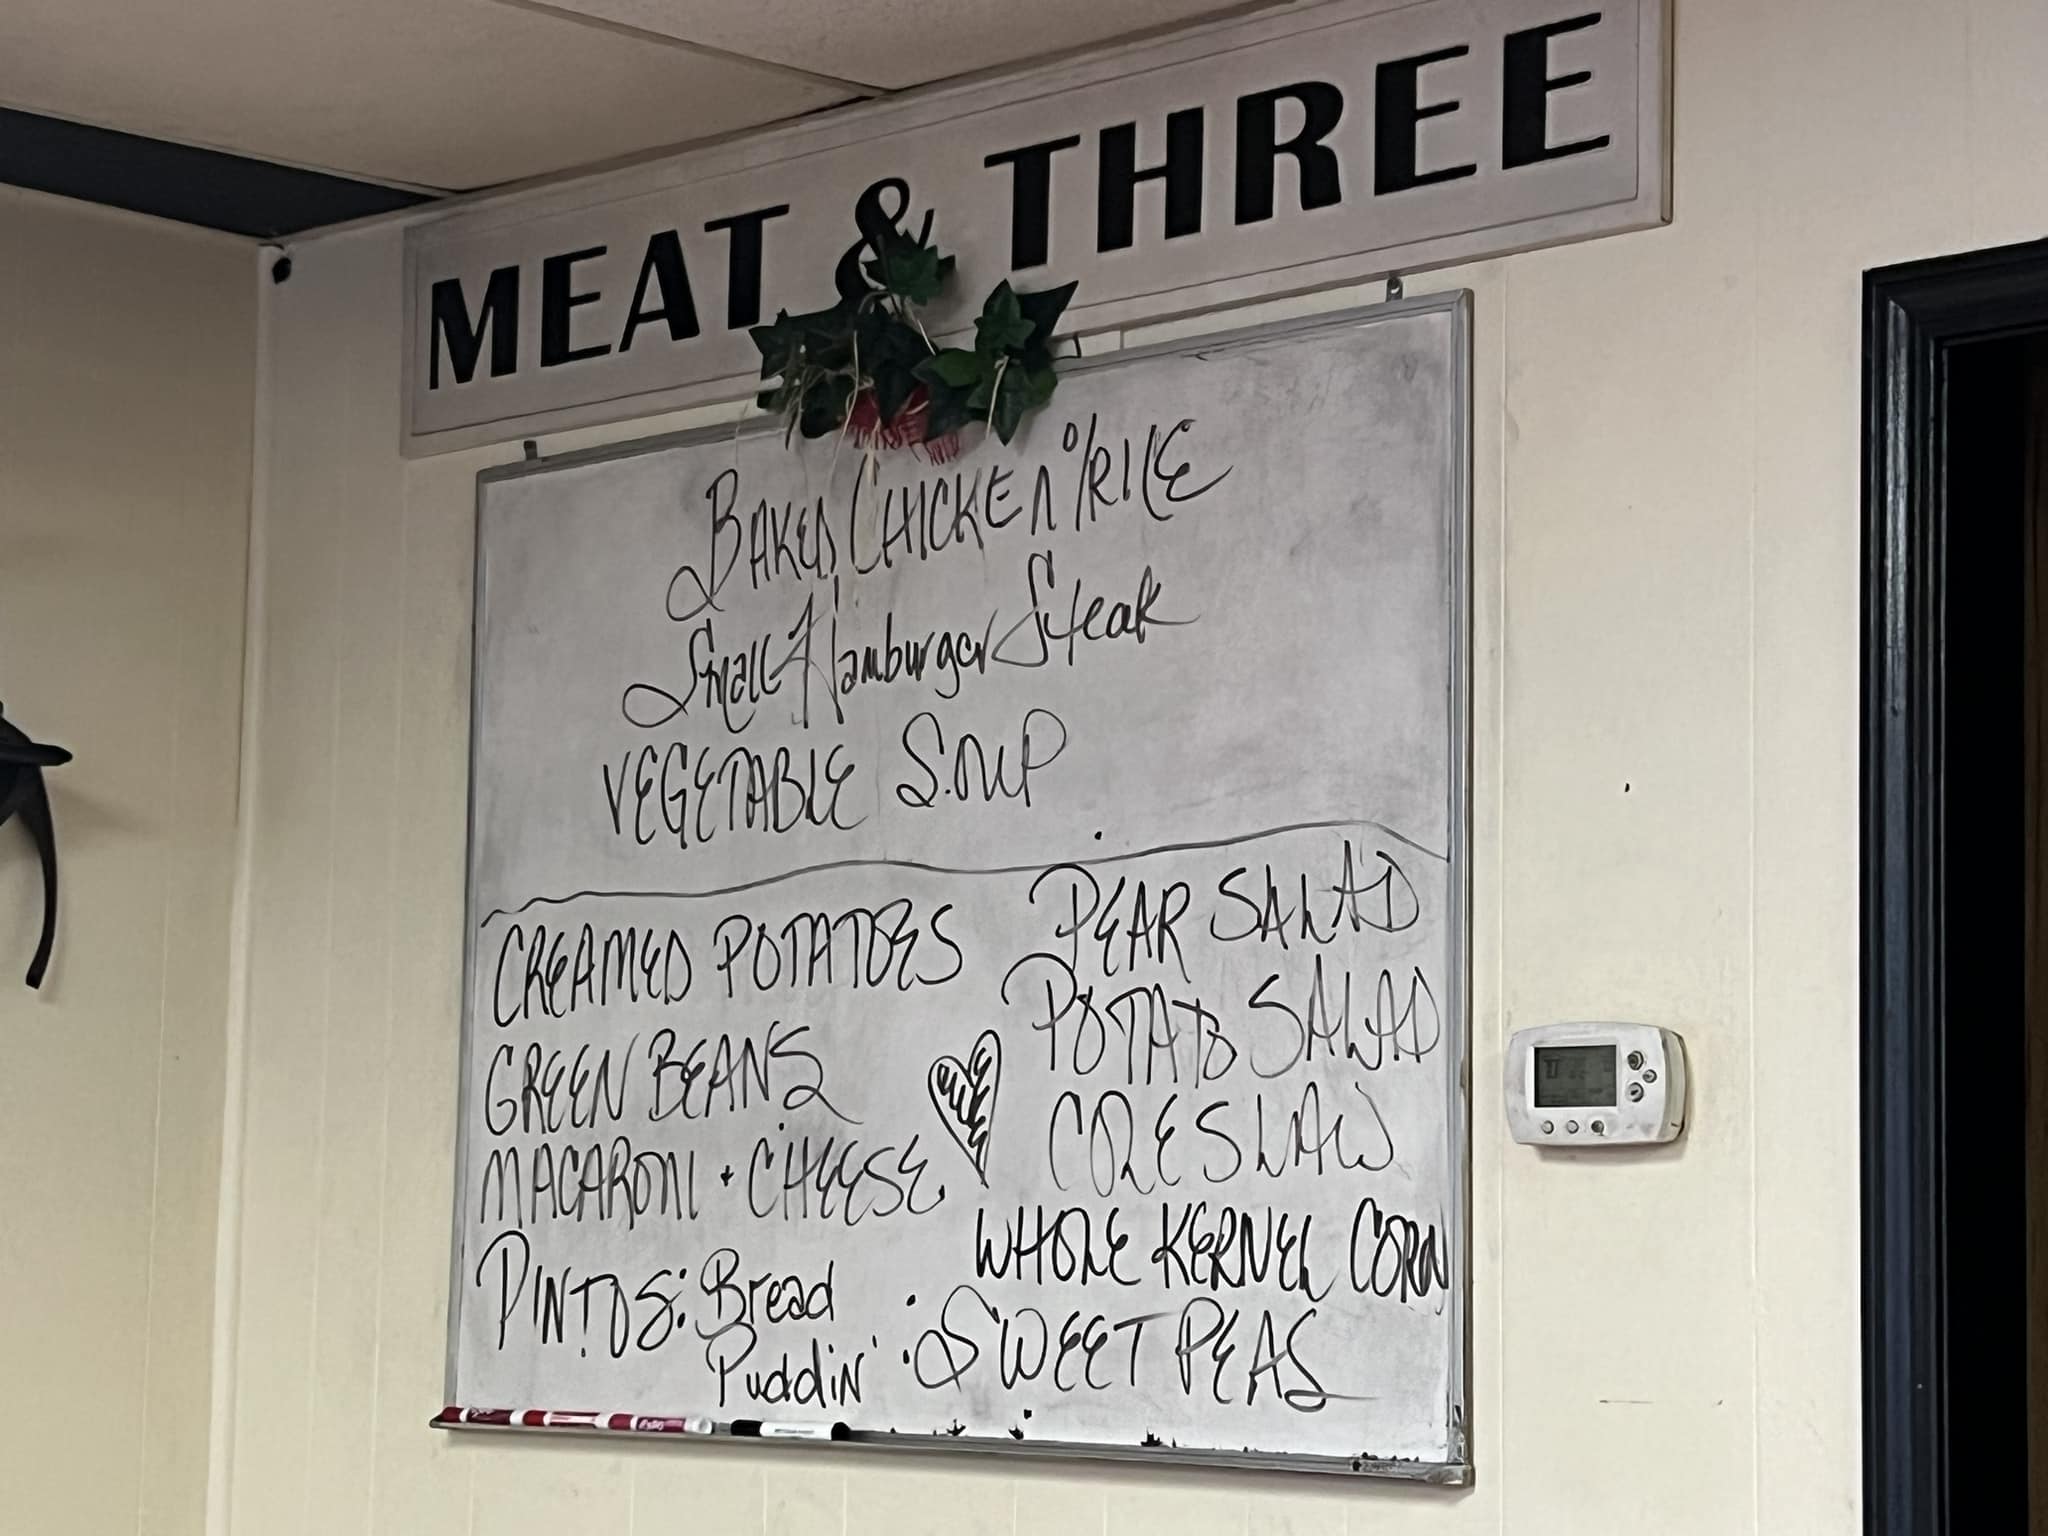 MEAT & THREE
BAKED CHICKEN %RICE
Small Hamburger Steak
VEGETABLE SOUP
CREAMED POTATOES
GREEN BEANS
MACARONI + CHEESE
PINTOS: Bread
Puddin'
PEAR SALAD
POTATO SALAD
COLESLAW
WHOLE KERNEL CORN
SWEET PEAS
Expo